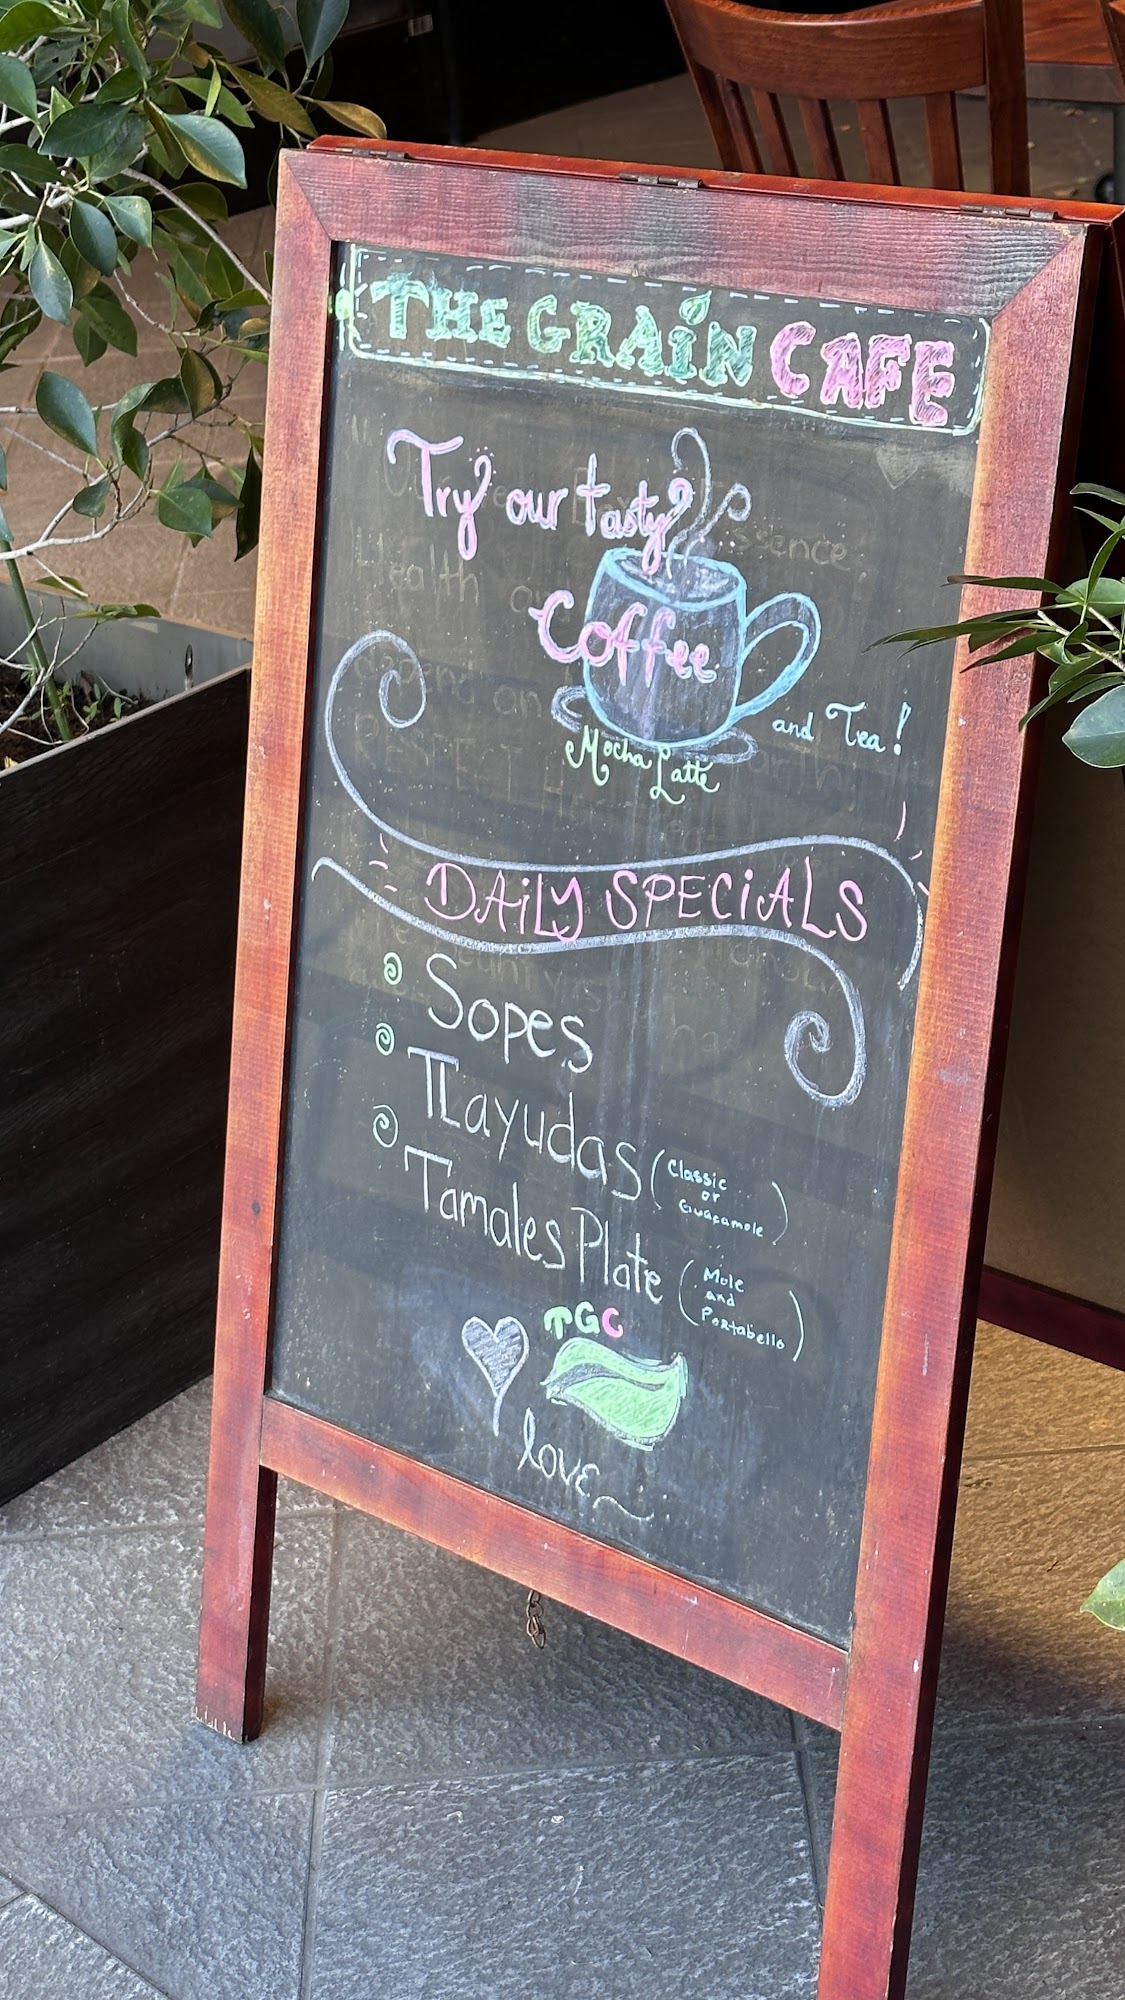 THE GRAIN CAFE
Try our tasty
Coffee
and Tea!
Mocha Latte
DAILY SPECIALS
Sopes
TLayudas (Classic
or
Guacamole)
Tamales Plate (Mole
and
Portabello)
TGC
love